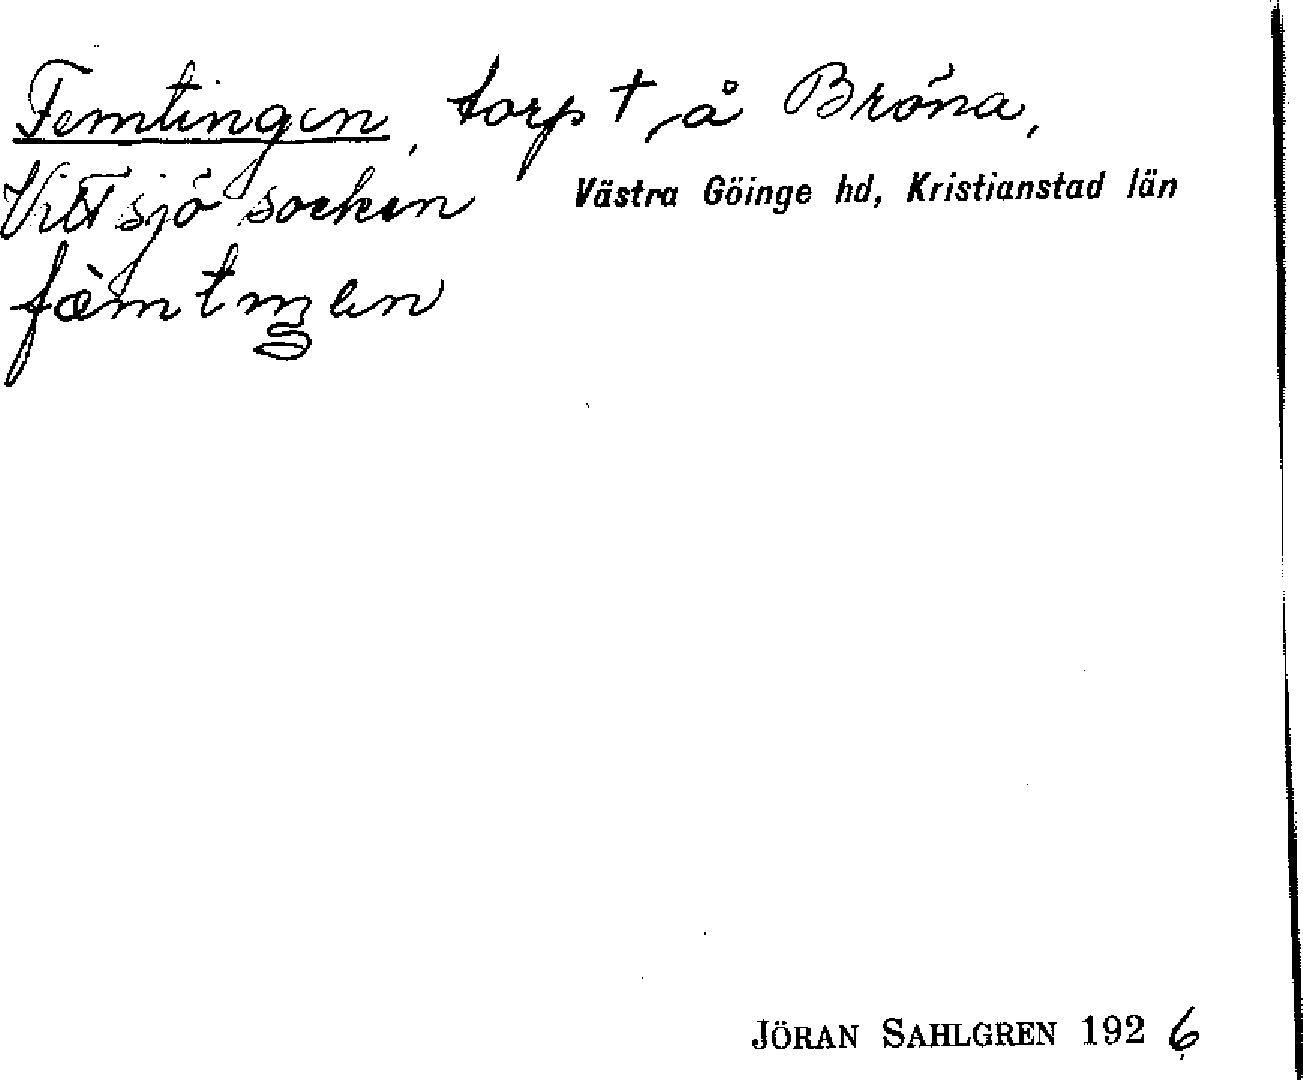 Femtingen, torp †, å Bröna,
Vittsjö socken Västra Göinge hd, Kristianstad län
JÖRAN SAHLGREN 1926